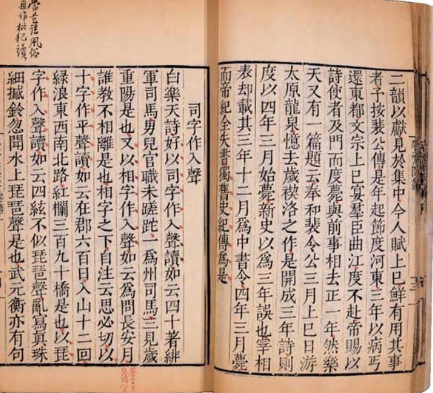 二韻以獻見於集中今人賦上巳鮮有用其事
者予按裴公傳是年起節度河東三年以病丐
還東都文宗上巳宴羣臣曲江度不赴帝賜以
詩使者及門而度薨與前事相去正一年然樂
天又有一篇題云奉和裴令公三月上巳日游
太原龍泉憶去歲禊洛之作是開成三年詩則
度以四年三月始薨新史以爲三年誤也宰相
表却載其三年十二月爲中書令四年三月薨
而帝紀全失書獨舊史紀傳爲是
司字作入聲
白樂天詩好以司字作入聲讀如云四十著緋
軍司馬男兒官職未蹉跎一爲州司馬三見歲
重陽是也又以相字作入聲如云爲問長安月
誰教不相離是也相字之下自注云思必切以
十字作平聲讀如云在郡六百日入山十二回
綠浪東西南北路紅欄三百九十橋是也以琵
字作入聲讀如云四絃不似琵琶聲亂寫真珠
細撼鈴忽聞水上琵琶聲是也武元衡亦有句